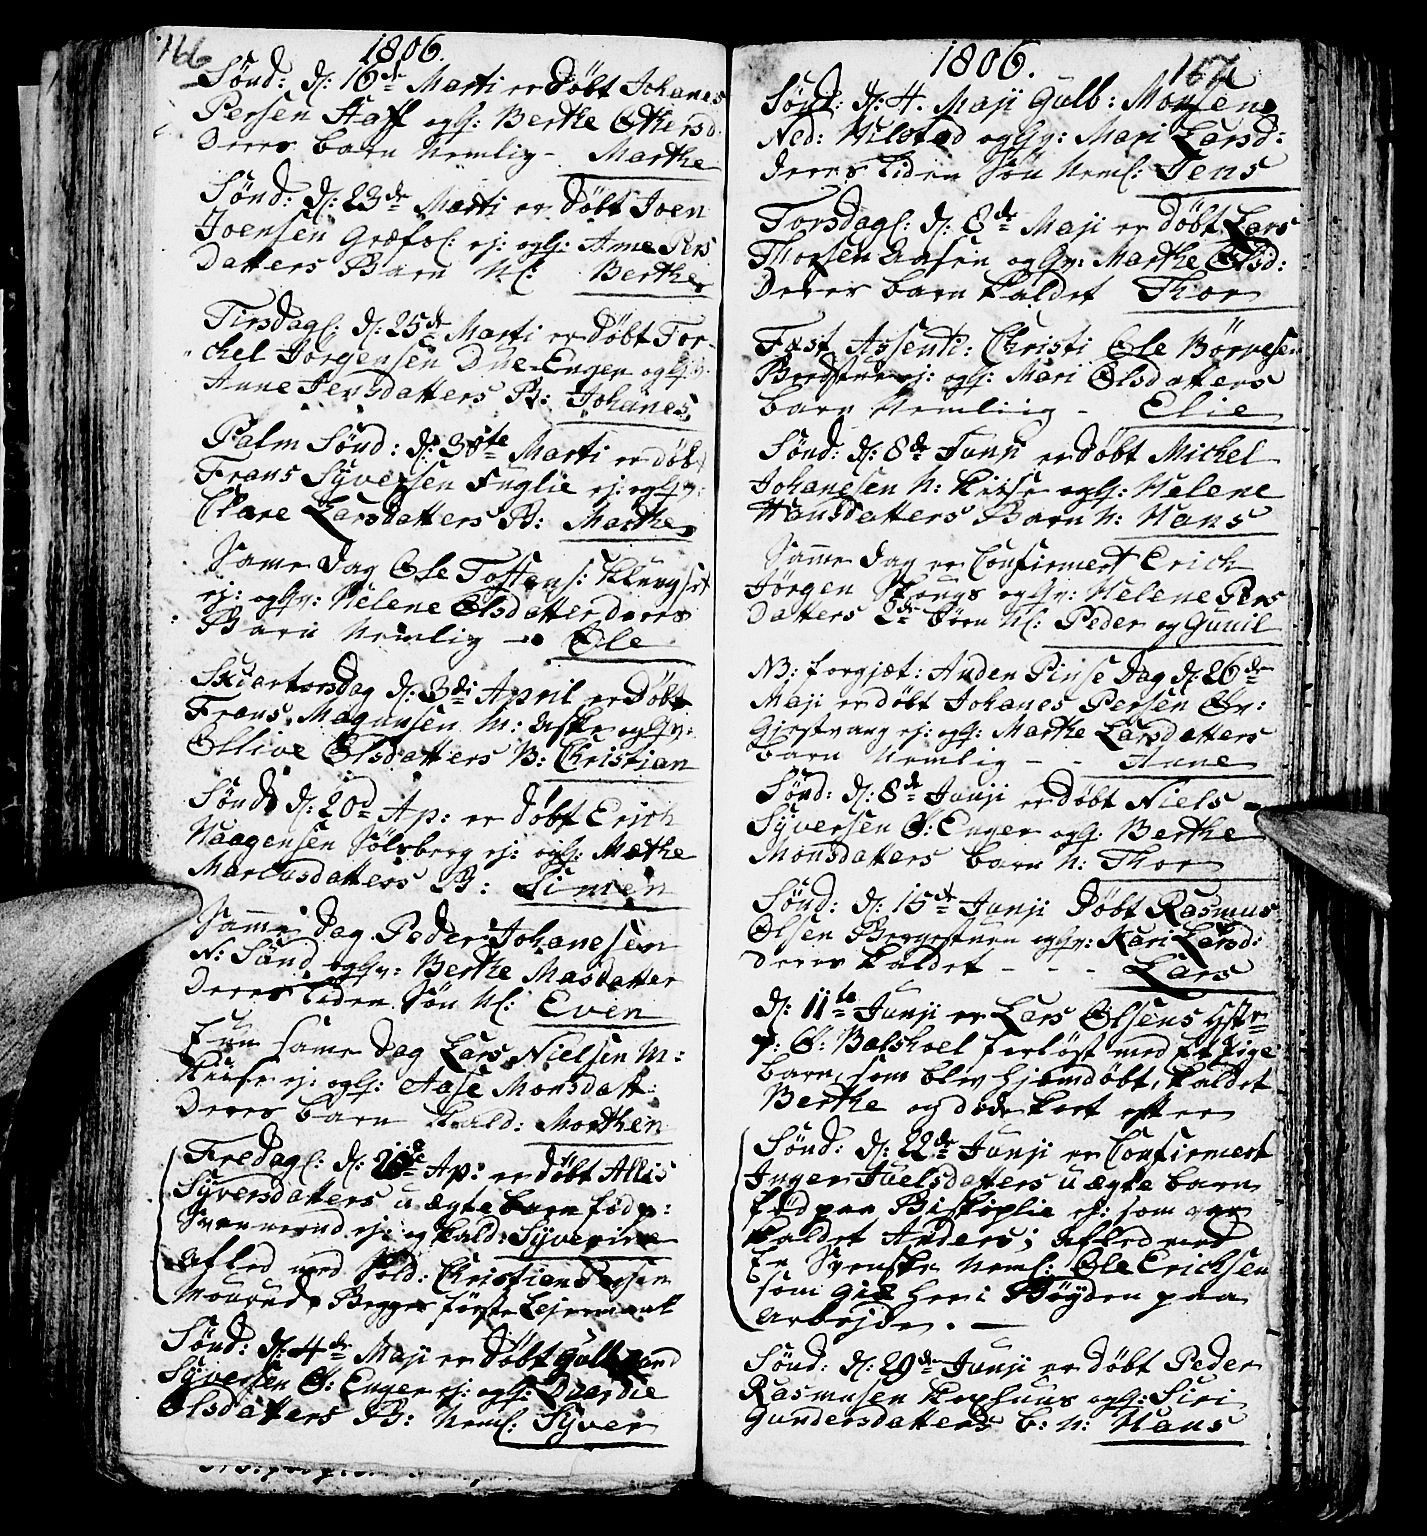 166
1806.
Sönd: d: 16de Marti er döbt Johanes
Persen Staff oghs: Berthe Othersd
Deres barn Nemlig - Marthe
Sönd: d: 23de Marti er döbt Joen
Joensen Græfsl: ej: oghs: Anne Pers
Datters Barn Nl: Berthe
Tirsdagl: d: 25de Marti er döbt Tor-
chel Jörgensen Due-Enger oghs:
Anne Jensdatters B: Johanes
Palm Sönd: d: 30te Marti er döbt
Frans Syversen Fuglie ej: oghu:
Clare Larsdatters B: Marthe
Same dag Ole Tostens: Klungset
ej: oghu: Helene Olsdatter deres
Barn Nemlig - Ole
Skiertorsdag d: 3di April er döbt
Frans Magnusen M: Aske oghu:
Ollive Olsdatters B: Christian
Sönd: d: 20d Ap: er döbt Erich
Haagensen Sölvberg ej: oghs: Mathe
Marcusdatters B: Simen
Samme dag Peder Johanesen
N: Sund oghu: Berthe Masdatter
Deres liden Sön Nl: Even
Enn same dag Lars Nielsen M:
Kiise ej: oghs: Aase Monsdatt:
Deres barn Kald: Morthen
Fredagl: d: 25de Ap: er döbt Allis
Syversdatters uægte barn född p:
ej: og kald: Syverine
Afled med Sold: Christian Persen
Begges förste Lejermaal
Sönd: d: 4de Maji er döbt Gulbrand
Syversen Ö: Enger ej: oghs: Dordie
Olsdatters B: Neml: Syver
1806. 167
Sönd: d: 4. Maji Gulb: Monsen
Ned: Hilstad oghu: Mari Larsd:
deres liden Sön Neml: Jens
Torsdagl: d: 8de Maji er döbt Lars
Thorsen Aasen oghu: Marthe Olsd:
Deres barn kaldet Thor
Fest Assenti: Christi Ole Börresen
Bergstue ej: oghs: Mari Olsdatters
barn Nemliig - Elie
Sönd: d: 8de Junii er döbt Michel
Johanesen N: Kiise oghs: Helene
Hansdatters Barn N: Hans
Samme dag er Confirmert Erich
Jörgen Skougs oghu: Helene Pers
Datters 2de börn Nl: Peder og Gunil
NB: forgjæt: Anden Pinse Dag d: 26de
Maji er döbt Johanes Persen Öv:
Gjestvang ej: oghs: Marthe Larsdatters
barn Nemlig - - Anne
Sönd: d: 8de Junji er döbt Niels -
Syversen Ö: Enger oghs: Berthe
Monsdatters barn N: Thor
Sönd: d: 15de Junji döbt Rasmus
Olsen Bergestuen oghu: Kari Larsd:
Deres kaldet - - - Lars
d: 11te Junji er Lars Olsens Hstr-
p: Ö: Balshoel forlöst med Et Pige
barn, som blev hjemdöbt, kaldet
Berthe og döde kort efter
Sönd: d: 22de Junji er Confirmert
Inger Juelsdatters uægte barn
född paa Biskoplie ej: som var
kaldet Anders; Afled med
En Svenske Neml: Ole Erichsen
som gik her i Böyden paa
Arbejde. -
Sönd: d: 29de Junji er döbt Peder
Rasmusen Korshuus oghs: Siri
Gundersdatters b: N: Hans